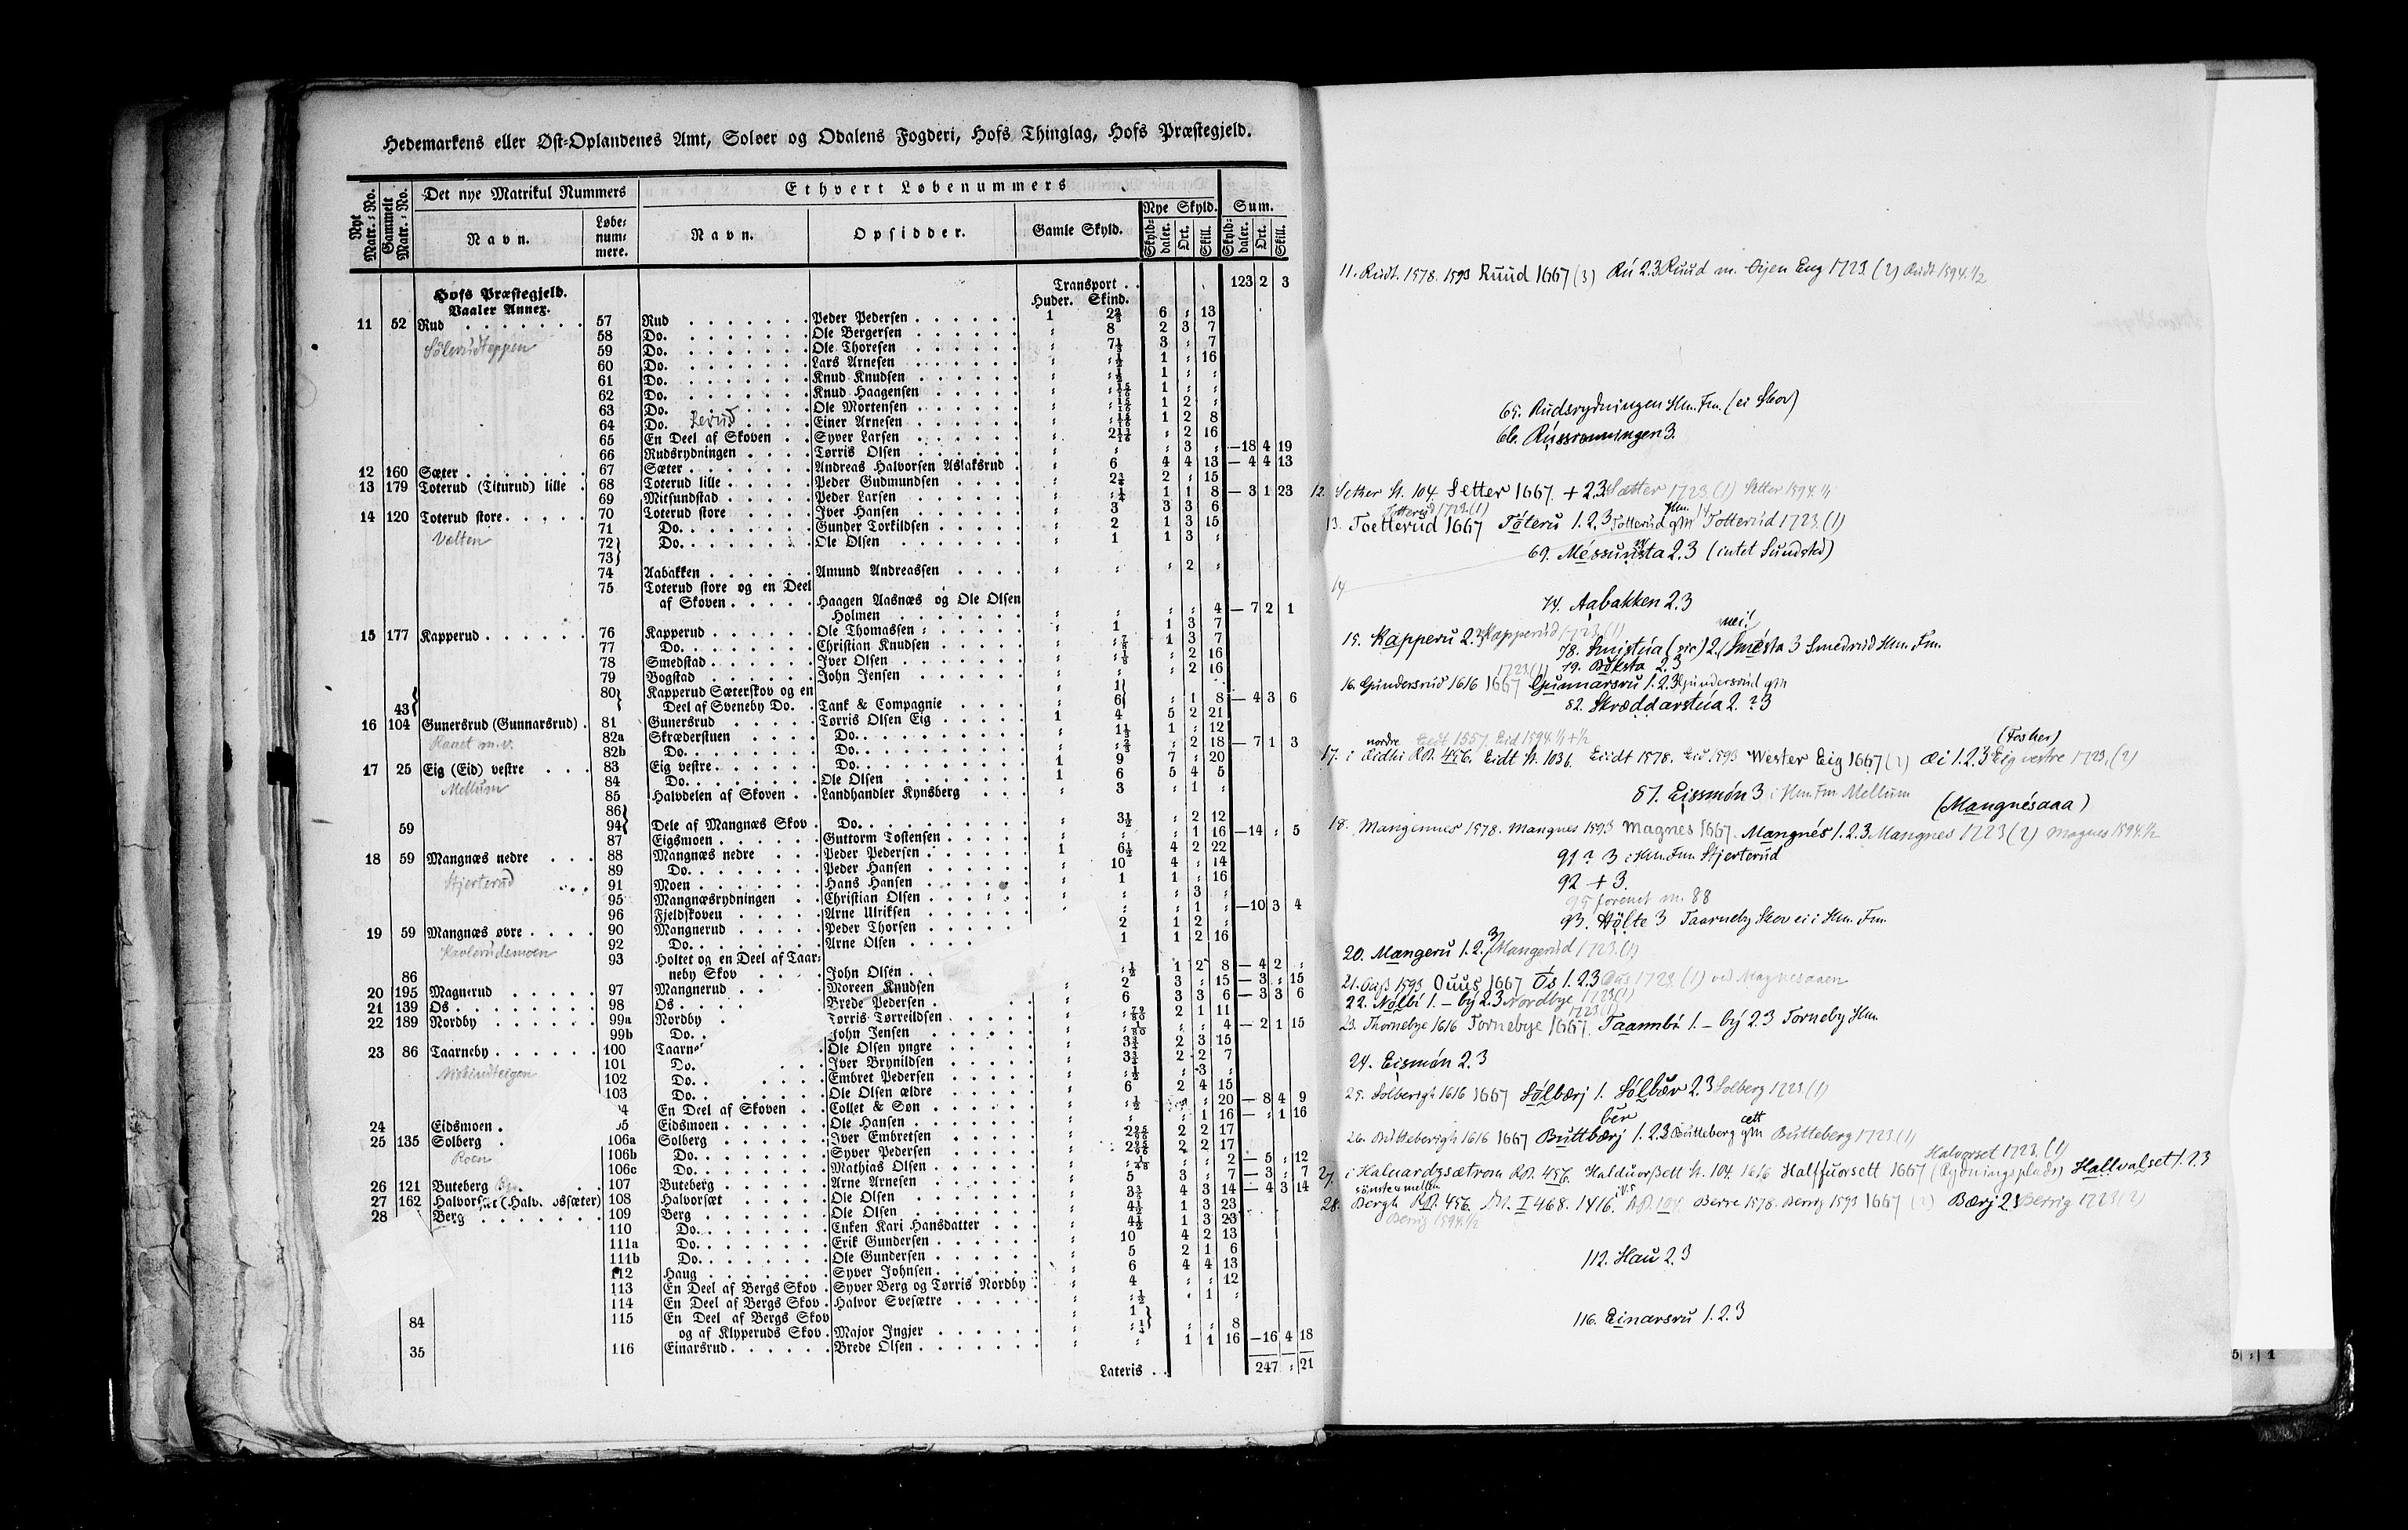 Hedemarkens eller Øst-Oplandenes Amt, Soløer og Odalens Fogderi, Hofs Thinglag, Hofs Præstegjeld.
Nyt Matr.-No. Gammelt Matr.-No. Det nye Matrikul Nummers Ethvert Løbenummers
Navn. Løbe-num-mere. Navn. Opsidder. Gamle Skyld. Nye Skyld. Sum.
Skyld-daler. Ort. Skill. Skyld-daler. Ort. Skill.
Hofs Præstegjeld. Transport . . 123 2 3
Vaaler Annex. Huder. Skind.
11 52 Rud 57 Rud Peder Pedersen 1 2⅔ 6 : 13
Sölerudteppen 58 Do. Ole Bergersen : 8 2 3 7
59 Do. Ole Thoresen : 7⅓ 3 : 7
60 Do. Lars Arnesen : 1 : 16
61 Do. Knud Knudsen : 1 : :
62 Do. Knud Haagensen : 1 : :
63 Do. Ole Mortensen : 1 2 :
64 Do. Lerud Einer Arnesen : 1 2 8
65 En Deel af Skoven Syver Larsen : : 2 16
66 Rudsrydningen Tørris Olsen : : : 3 : —18 4 19
12 160 Sæter 67 Sæter Andreas Halvorsen Aslaksrud : 6 4 4 13 — 4 4 13
13 179 Toterud (Titurud) lille 68 Toterud lille Peder Gudmundsen : 2 : 15
69 Mitsundstad Peder Larsen : 1 1 8 — 3 1 23
14 120 Toterud store 70 Toterud store Iver Hansen : 3 3 3 6
Velten 71 Do. Gunder Torkildsen : 2 1 3 15
72} Do. Ole Olsen : 1 1 3 :
73}
74 Aabakken Amund Andreassen : : : 2 :
75 Toterud store og en Deel
af Skoven Haagen Aasnæs og Ole Olsen
Holmen : : : : 4 — 7 2 1
15 177 Kapperud 76 Kapperud Ole Thomassen : 1 1 3 7
77 Do. Christian Knudsen : 1 3 7
78 Smedstad Iver Olsen : : 2 16
79 Bogstad John Jensen : : : 2 16
80} Kapperud Sæterskov og en
43{ Deel af Sveneby Do. Tank & Compagnie : : 1 8 — 4 3 6
16 104 Gunersrud (Gunnarsrud) 81 Gunersrud Tørris Olsen Eig 1 4 5 2 21
82a Skræderstuen Do. : 1½ 1 : 12
82b Do. Do. : : 2 18 — 7 1 3
17 25 Eig (Eid) vestre 83 Eig vestre Do. 1 9 7 : 20
Mellum 84 Do. Ole Olsen 1 6 5 4 5
85 Halvdelen af Skoven Landhandler Kynsberg : 3 : 1 :
86}
59 94{ Dele af Mangnæs Skov Do. : 3½ : 2 12
87 Eigsmoen Guttorm Tostensen : : : 1 16 —14 : 5
18 59 Mangnæs nedre 88 Mangnæs nedre Peder Pedersen 1 6½ 4 2 22
Hjerterud 89 Do. Peder Hansen : 10 4 : 14
91 Moen Hans Hansen : 1 1 : 16
95 Mangnæsrydningen Christian Olsen : : : 3 :
96 Fjeldskoven Arne Ulriksen : : : 1 : —10 3 4
19 59 Mangnæs øvre 90 Mangnerud Peder Thorsen 2 1 2 :
Kavlerudsmoen 92 Do. Arne Olsen 1 1 2 16
93 Holtet og en Deel af Taar-
86 neby Skov John Olsen :½ 1 2 8 — 4 2 :
20 195 Magnerud 97 Mangnerud Moreen Knudsen : 2 3 : 15 — 3 : 15
21 139 Os 98 Os Brede Pedersen : 6 3 3 6 — 3 3 6
22 189 Nordby 99a Nordby Tørris Tørreildsen : 2 1 11
99b Do. John Jensen : : : 4 — 2 1 15
23 86 Taarneby 100 Taarne Ole Olsen yngre : 2 3 15
101 Do. Iver Brynildsen : 2 2 7
102 Do. Embret Pedersen : : 3 :
103 Do. Ole Olsen ældre : 6 2 4 15
En Deel af Skoven Collet & Søn : ½ : 20 — 8 4 9
24 Eidsmoen Eidsmoen Ole Hansen : : : 1 16 — : 1 16
25 135 Solberg 106a Solberg Iver Embretsen : 2 2 17
Roen 106b Do. Syver Pedersen : 2 2 17
106c Do. Mathias Olsen : : : 2 — 5 : 12
26 121 Buteberg 107 Buteberg Arne Arnesen : 5 3 : 7 — 3 : 7
27 162 108 Halvorsæt Ole Olsen : 3⅔ 4 3 14 — 4 3 14
28 Berg 109 Berg Ole Olsen : 4½ 1 3 23
110 Do. Enken Kari Hansdatter : 4½ 1 3 23
111a Do. Erik Gundersen : 10 4 2 13
111b Do. Ole Gundersen : 5 2 1 6
112 Haug Syver Johnsen : 6 4 4 13
113 En Deel af Bergs Skov Syver Berg og Tørris Nordby : 4 : : 12
114 En Deel af Bergs Skov Halvor Svesætre : ½ : 1 :
115 En Deel af Bergs Skov : 1
84 og af Klyperuds Skov Major Ingjer : : : 8
35 116 Einarsrud Brede Olsen : : 1 1 16 —16 4 18
Lateris . . 247 : 21
11. Rudt. 1578. 1593 Ruud 1667 (3) Rú 2.3 Ruud m. Oijen Eng 1723. (2) Rudt 1594. ½
65. Rudsrydningen Hm. Fm. (ei Skov)
66. Rússrønningen 3.
12. Sether St. 104. Setter 1667. + 2.3 Sætter 1723. (1) Setter 1594. ¼
13. Toetterud 1667 Tóleru 1.2.3 Totterud 1723. (1)
69. Méssunsta 2.3 (intet Sundsted)
14
74. Aabakken 2.3
nei!
15. Kapperu 2.3 Kapperud 1723. (1)
78. Smistúa (sic) 2. (Smésta 3 Smedrud Hm. Fm.
79. Bóksta 2.3
16. Gundersrud 1616 1667 1723. (1) Gunnarsru 1.2.3 Gundersrud
82. Skræddarstúa 2. ? 3
nordre Eidt 1557 Eid 1594. (Fosher)
17. i Eidhi RB. 456. Eidt St. 103b. Eiedt 1578. Eid 1593 Wester Eig 1667 Æi 1.2.3 Eig vestre 1723. (2)
87. Eissmón 3 i Hm. Fm Mellum
(Mangnésaaa)
18. Mangennes 1578. Mangnes 1593 Magnes 1667. Mangnés 1.2.3 Mangnes 1723 (2) Magnes 1594. ½
91 ? 3 i Hm. Fm. Hjerterud
92 + 3.
95 forenet m. 88
93. Hólte 3 Taarneby Skov ei i Hm. Fm.
20. Mangeru 1.2.3 Mangerud 1723. (1)
21. 1593 Ouus 1667 Ós 1.2.3 Ous 1723. (1) ved Magnesaaen
22. Nólbi 1. – bý 2.3 Nordbye 1723. (1)
23. Thornebye 1616 Tornebye 1667. 1723. (1) Taarnbi 1. – bý 2.3 Torneby Hm.
24. Eismón 2.3
25. Solberigh 1616 1667 Sólbærj 1. Sólbær 2.3 Solberg 1723. (1)
bér
26. Butteberigh 1616 1667 Buttbærj 1.2.3 Butteberg Butteberg 1723. (1)
Halvorset 1723. (1)
27. i Haluardzsætrom RB. 456. Halduorßett St. 104. 1616 Halffuorsett 1667 (Rydningsplads) Hallvalset 1.2.3
28. Bergh RB. 456. DN. I 468. 1416. RB. 104. Berre 1578. Berrig 1593 1667 Bærj 2.3 Berrig 1723 (2)
Berrig 1594. ½
112. Hau 2.3
116. Einarsrú 1.2.3